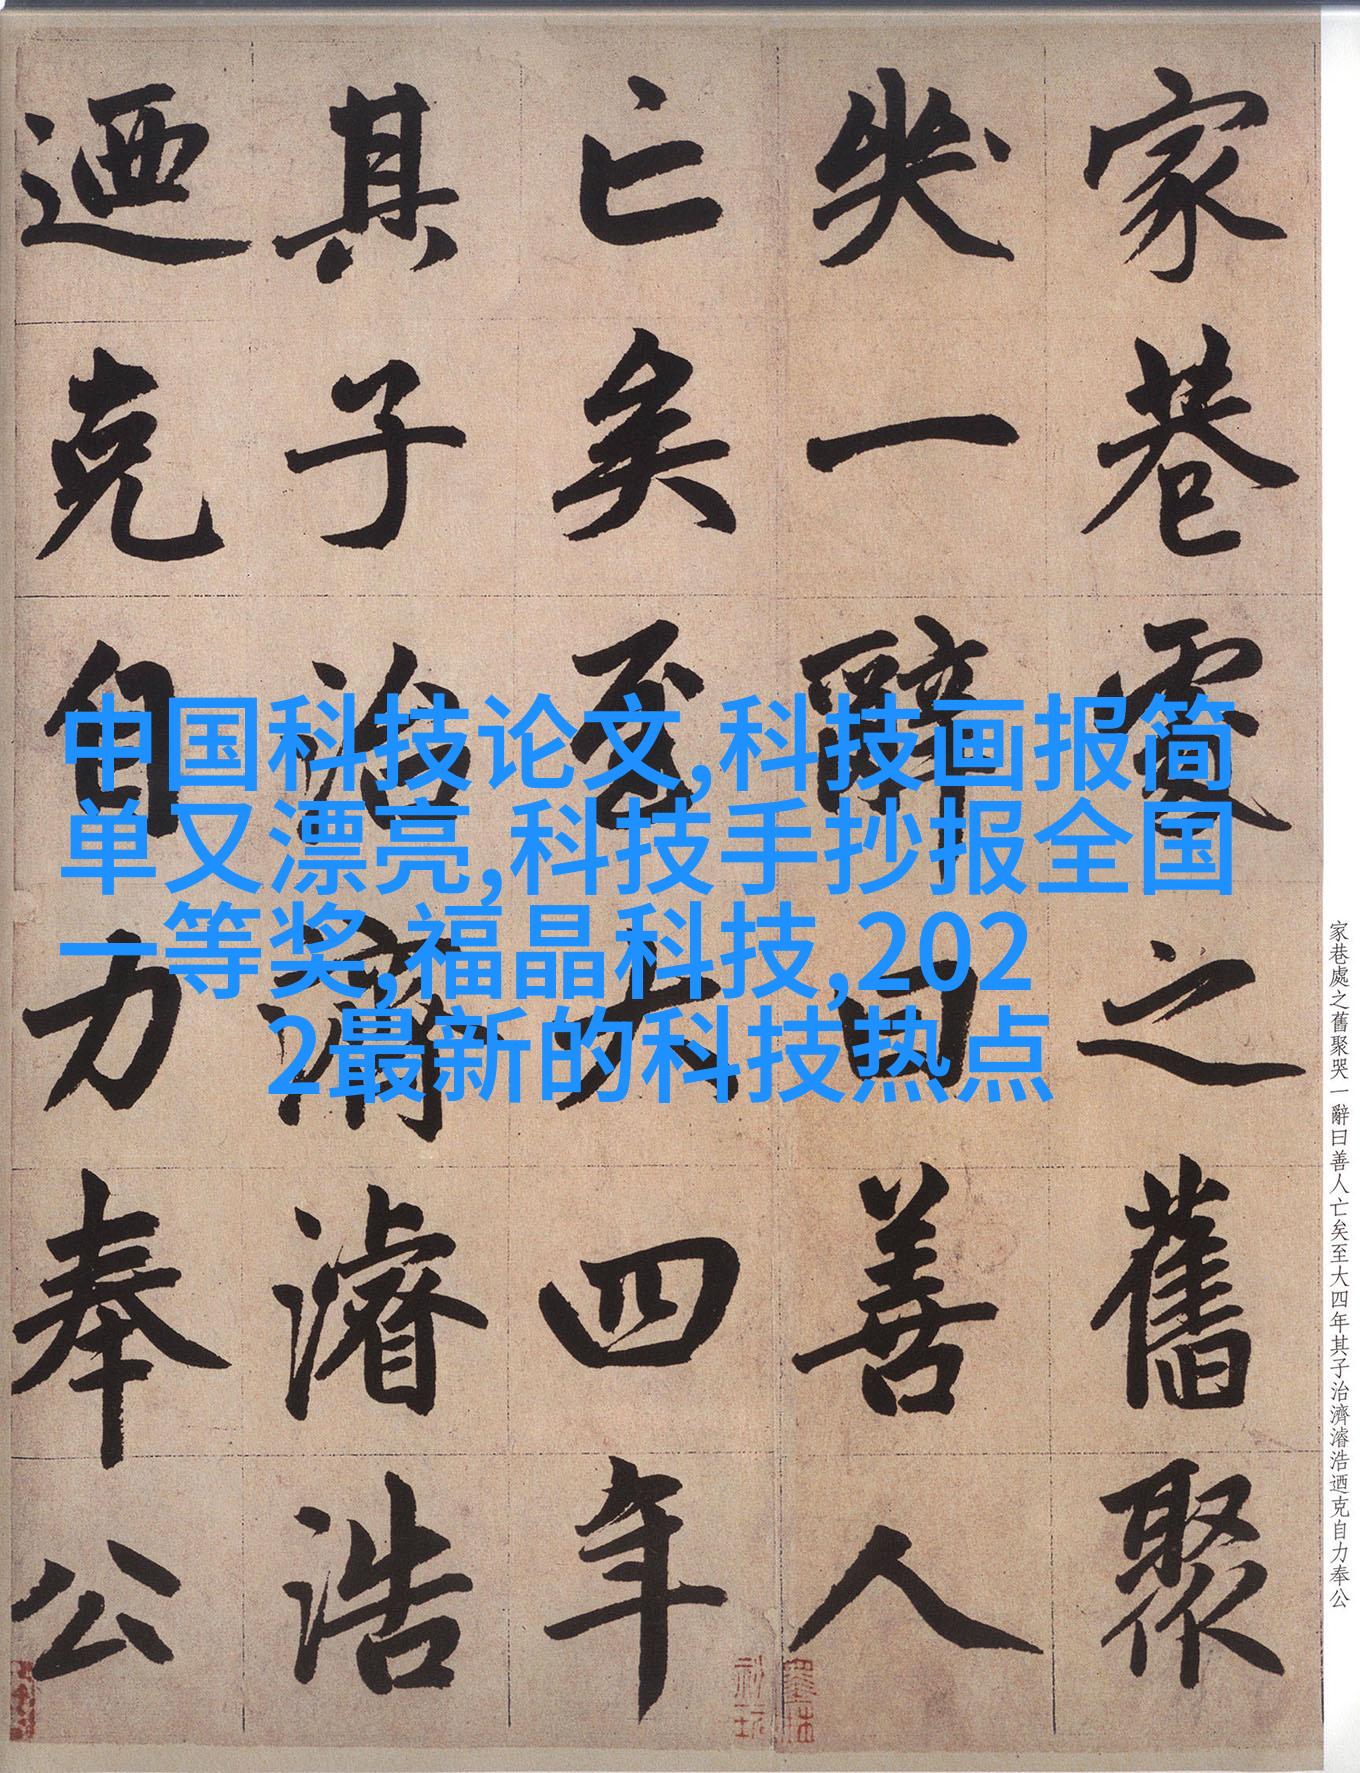 家巷處之舊聚
哭一辭曰善人
亡矣至大四年
其子治濟濬浩
迺克自力奉公
中国科技论文,科技画报简
单又漂亮,科技手抄报全国
一等奖,福晶科技,202
2最新的科技热点
家巷處之舊聚哭一辭曰善人亡矣至大四年其子治濟濬浩迺克自力奉公